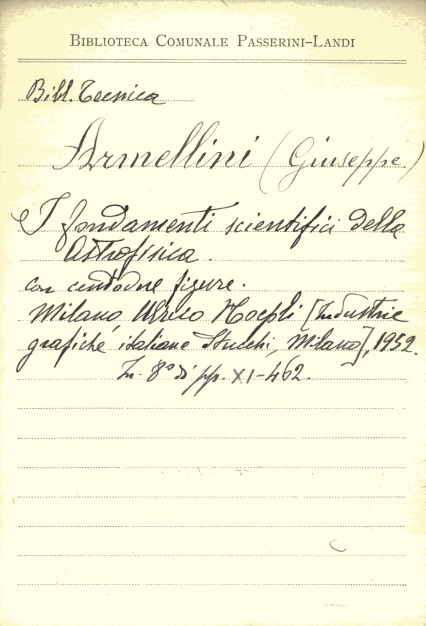 BIBLIOTECA COMUNALE PASSERINI-LANDI
Bibl. Tecnica
Armellini (Giuseppe)
I fondamenti scientifici della
Astrofisica.
con centodue figure.
Milano, Ulrico Hoepli [Industrie
grafiche italiane Stucchi, Milano], 1952.
In-8° di pp. XI-462.